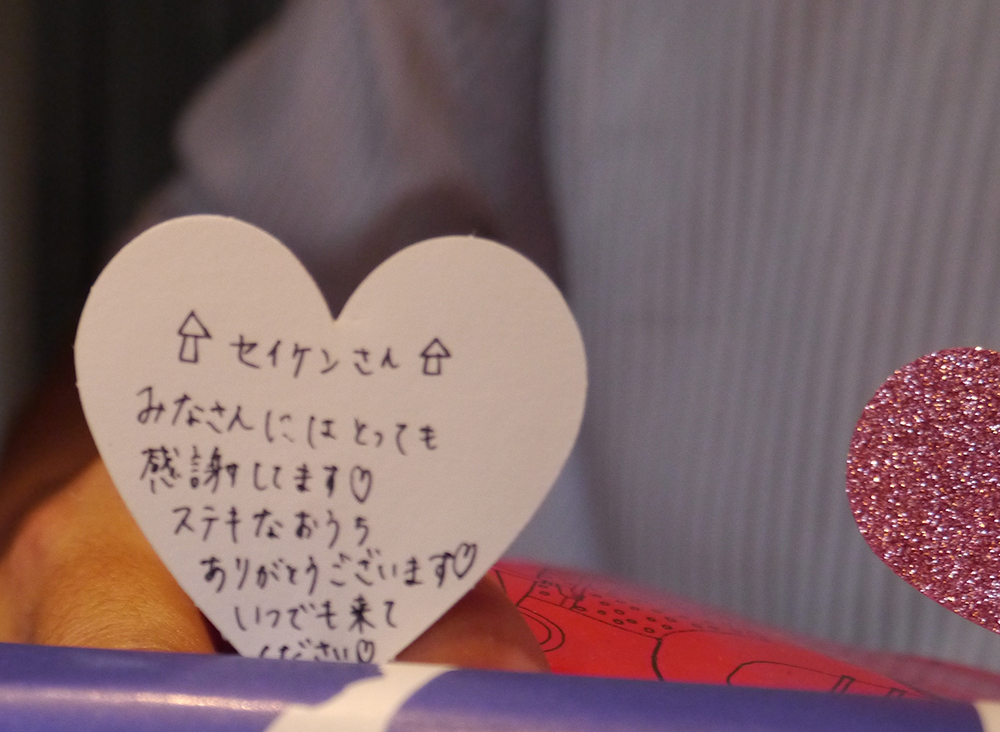 セイケンさん
みなさんにはとっても
感謝してます♡
ステキなおうち
ありがとうございます♡
いつでも来て
ください♡